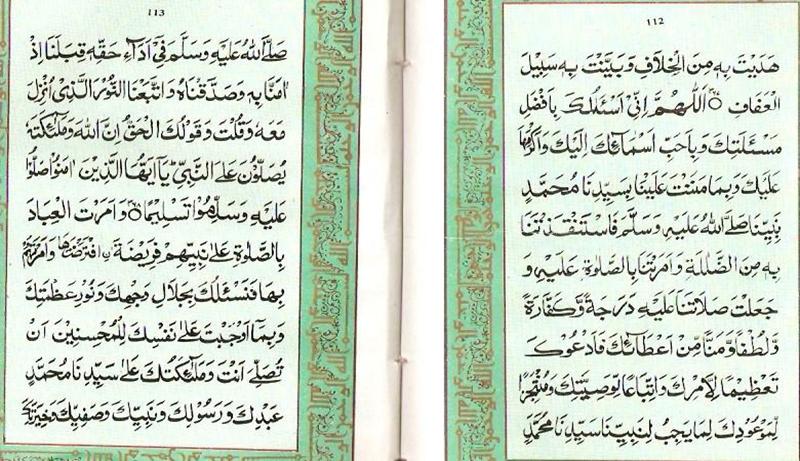 112
هَدَيْتَ بِهٖ مِنَ الْخِلَافِ وَبَيَّنْتَ بِهٖ سَبِيْلَ
الْعَفَافِ ۝ اَللّٰهُمَّ اِنِّىْ اَسْئَلُكَ بِاَفْضَلِ
مَسْئَلَتِكَ وَبِاَحَبِّ اَسْمَآئِكَ اِلَيْكَ وَاَكْرَمِهَا
عَلَيْكَ وَبِمَا مَنَنْتَ عَلَيْنَا بِسَيِّدِنَا مُحَمَّدٍ
نَبِيِّنَا صَلَّى اللّٰهُ عَلَيْهِ وَسَلَّمَ فَاسْتَنْقَذْتَنَا
بِهٖ مِنَ الضَّلٰلَةِ وَاَمَرْتَنَا بِالصَّلٰوةِ عَلَيْهِ وَ
جَعَلْتَ صَلَاتَنَا عَلَيْهِ دَرَجَةً وَّكَفَّارَةً
وَّلُطْفًا وَّمَنًّا مِّنْ اِعْطَآئِكَ فَاَدْعُوْكَ
تَعْظِيْمًا لِّاَمْرِكَ وَاتِّبَاعًا لِّوَصِيَّتِكَ وَمُنْتَجِزًا
لِّمَوْعُوْدِكَ لِمَا يَجِبُ لِنَبِيِّنَا سَيِّدِنَا مُحَمَّدٍ
113
صَلَّى اللّٰهُ عَلَيْهِ وَسَلَّمَ فِىْ اَدَآءِ حَقِّهٖ قِبَلَنَا اِذْ
اٰمَنَّا بِهٖ وَصَدَّقْنَاهُ وَاتَّبَعْنَا النُّوْرَ الَّذِىْ اُنْزِلَ
مَعَهٗ وَقُلْتَ وَقَوْلُكَ الْحَقُّ اِنَّ اللّٰهَ وَمَلٰٓئِكَتَهٗ
يُصَلُّوْنَ عَلَى النَّبِىِّ يٰٓاَيُّهَا الَّذِيْنَ اٰمَنُوْا صَلُّوْا
عَلَيْهِ وَسَلِّمُوْا تَسْلِيْمًا ۝ وَاَمَرْتَ الْعِبَادَ
بِالصَّلٰوةِ عَلٰى نَبِيِّهِمْ فَرِيْضَةَ نِ افْتَرَضْتَهَا وَاَمَرْتَهُمْ
بِهَا فَنَسْئَلُكَ بِجَلَالِ وَجْهِكَ وَنُوْرِ عَظَمَتِكَ
وَبِمَا اَوْجَبْتَ عَلٰى نَفْسِكَ لِلْمُحْسِنِيْنَ اَنْ
تُصَلِّىَ اَنْتَ وَمَلٰٓئِكَتُكَ عَلٰى سَيِّدِنَا مُحَمَّدٍ
عَبْدِكَ وَرَسُوْلِكَ وَنَبِيِّكَ وَصَفِيِّكَ وَخِيَرَتِكَ